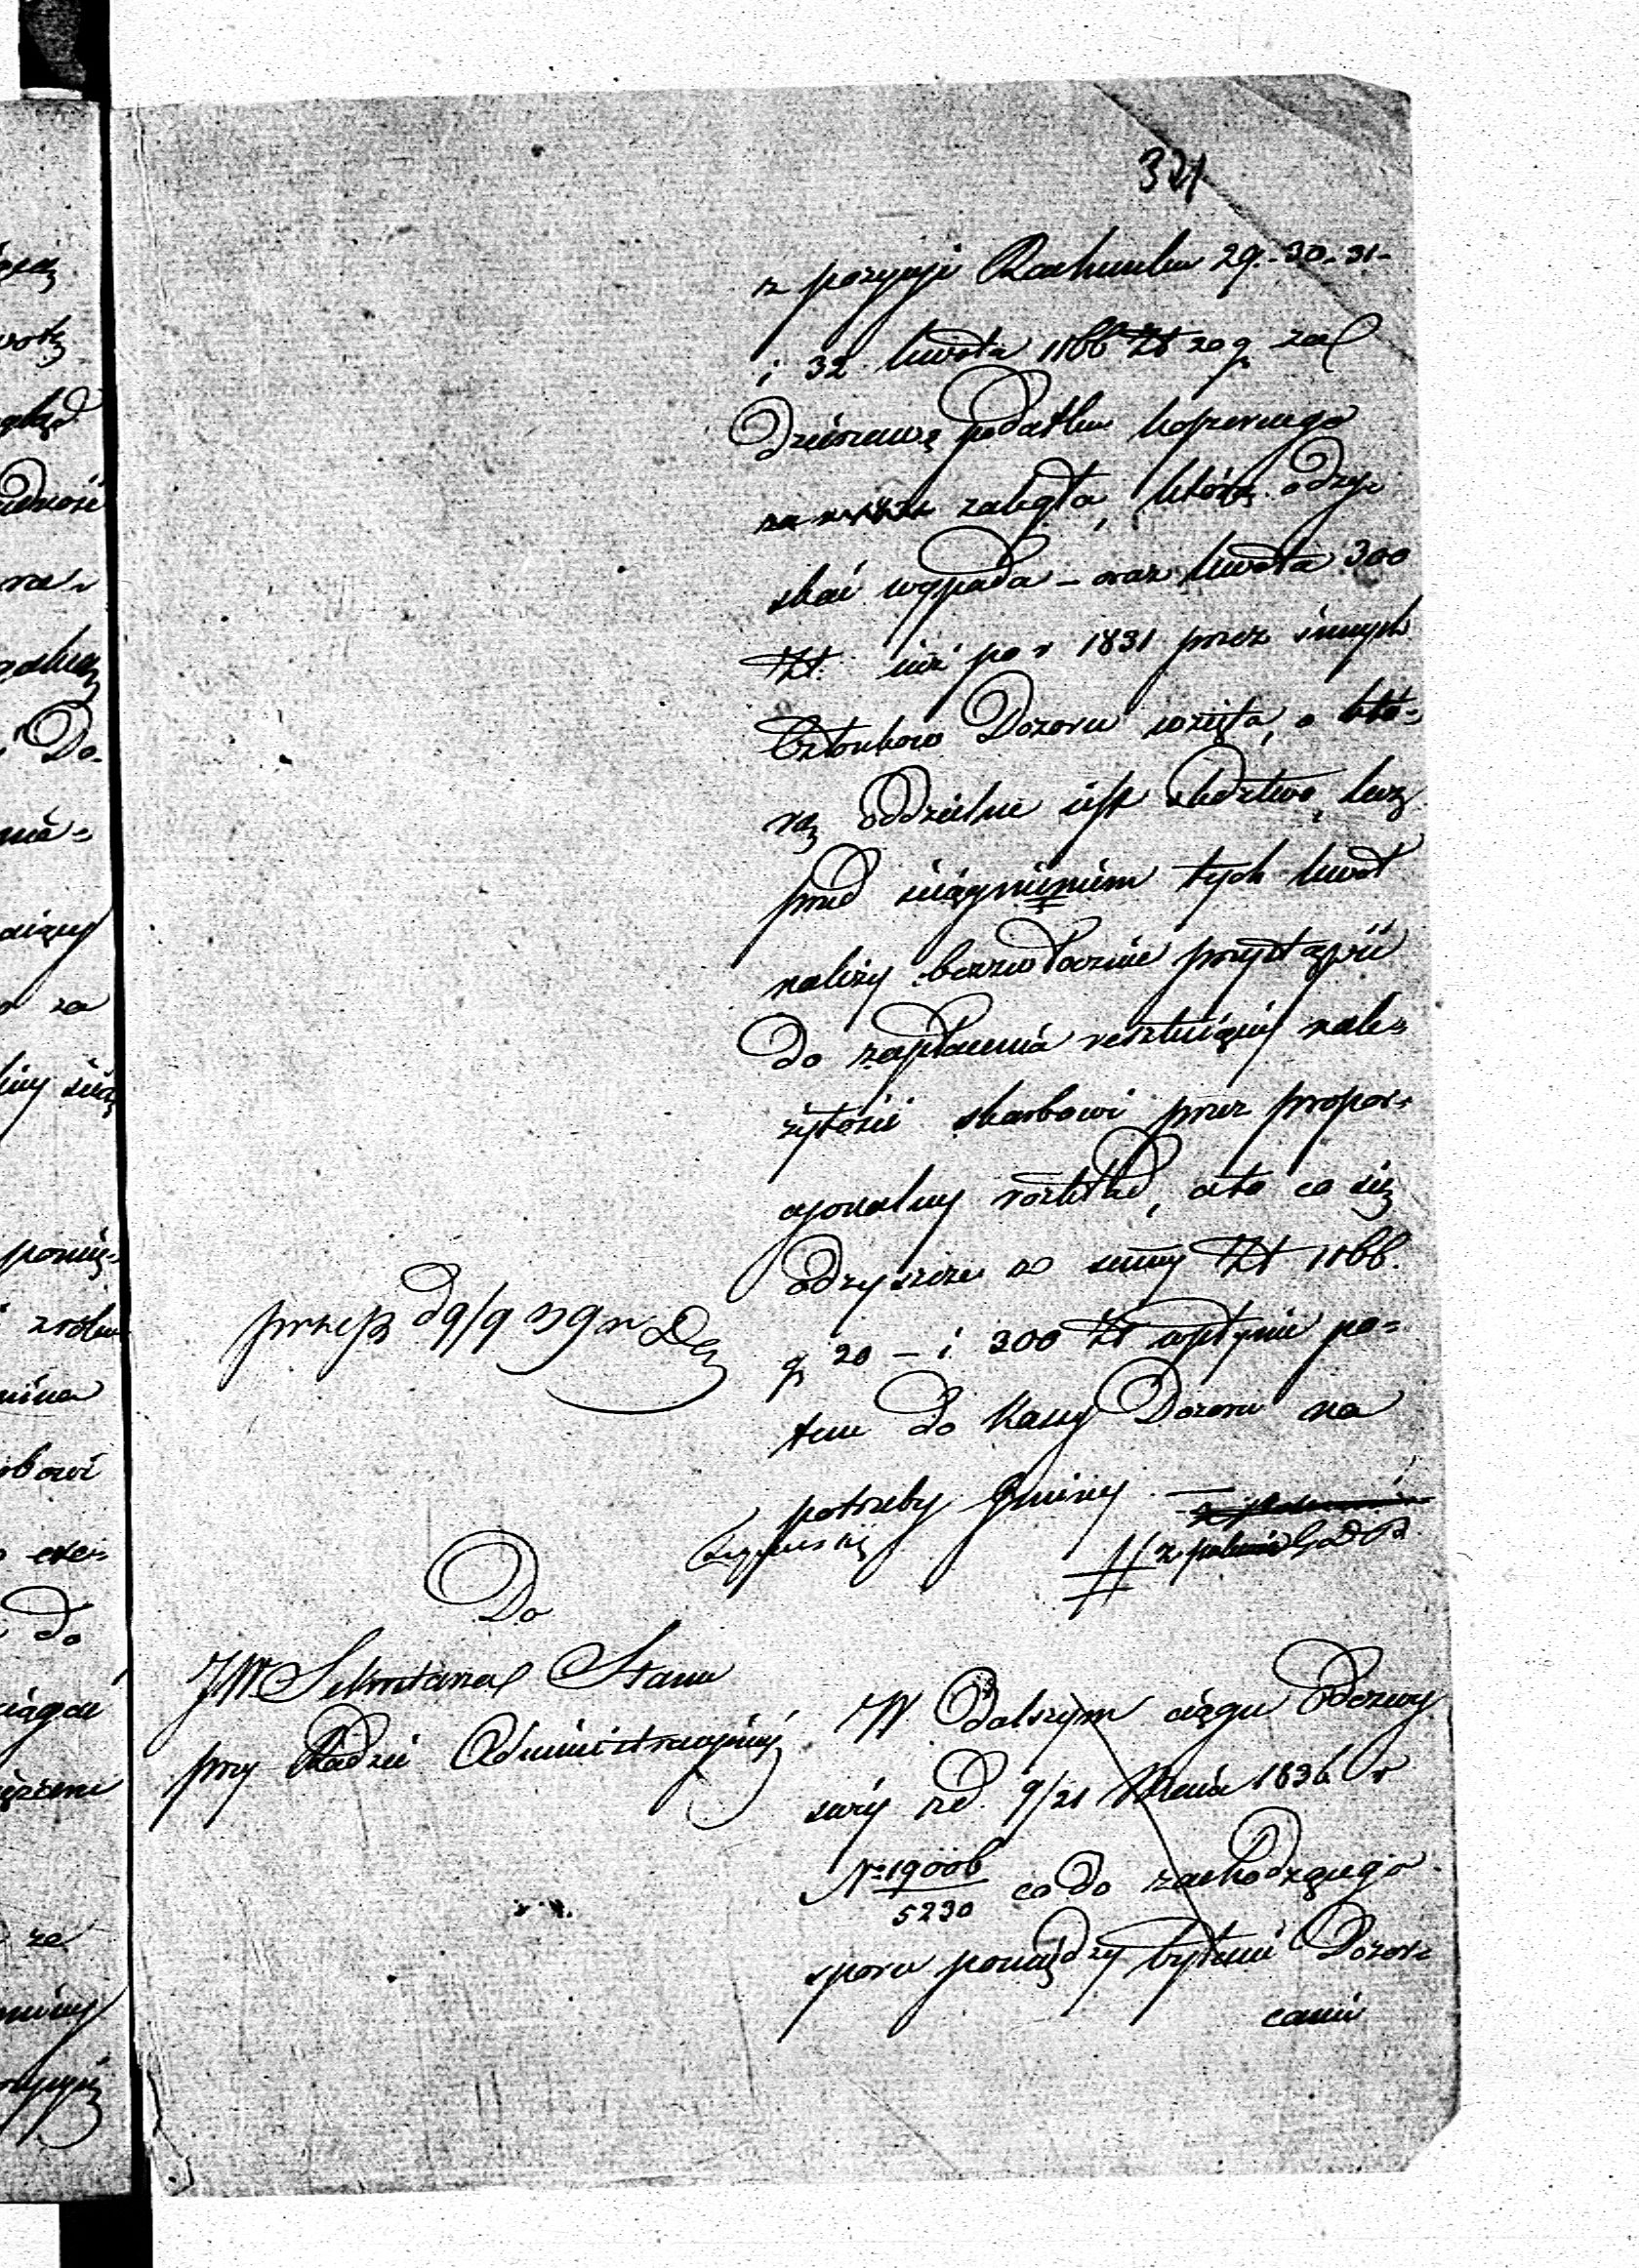 321
z pozycyi Rachunku 29. 30. 31.
i 32 kwota 1166 Zł 20 g. za
Dzierzawę podatku koszernego
zaległa, którą odzy-
skać wypada – oraz kwota 300
Zł. już po r 1831 przez innych
Członkow Dozoru wzięta, o któ-
rą oddzielne iest śledztwo, lecz
przed ściągnieniem tych kwot
należy bezzwłocznie przystąpić
do zapłacenia resztuiącéy nale-
żytości skarbowi przez propor-
cyonalny rozkład, a to co się
odzyszcze z summy Zł 1166.
g 20 – i 300 Zł wpłynie po-
tem do Kassy Dozoru na
potrzeby Gminy. —
Do
JW Sekretarza Stanu
przy Radzie Administracyinéy
W dalszym ciągu Odezwy
swéy z d. 9/21 1836 r
No 19006
5230
co do zachodzącego
sporu pomiędzy byłemi Dozor-
cami